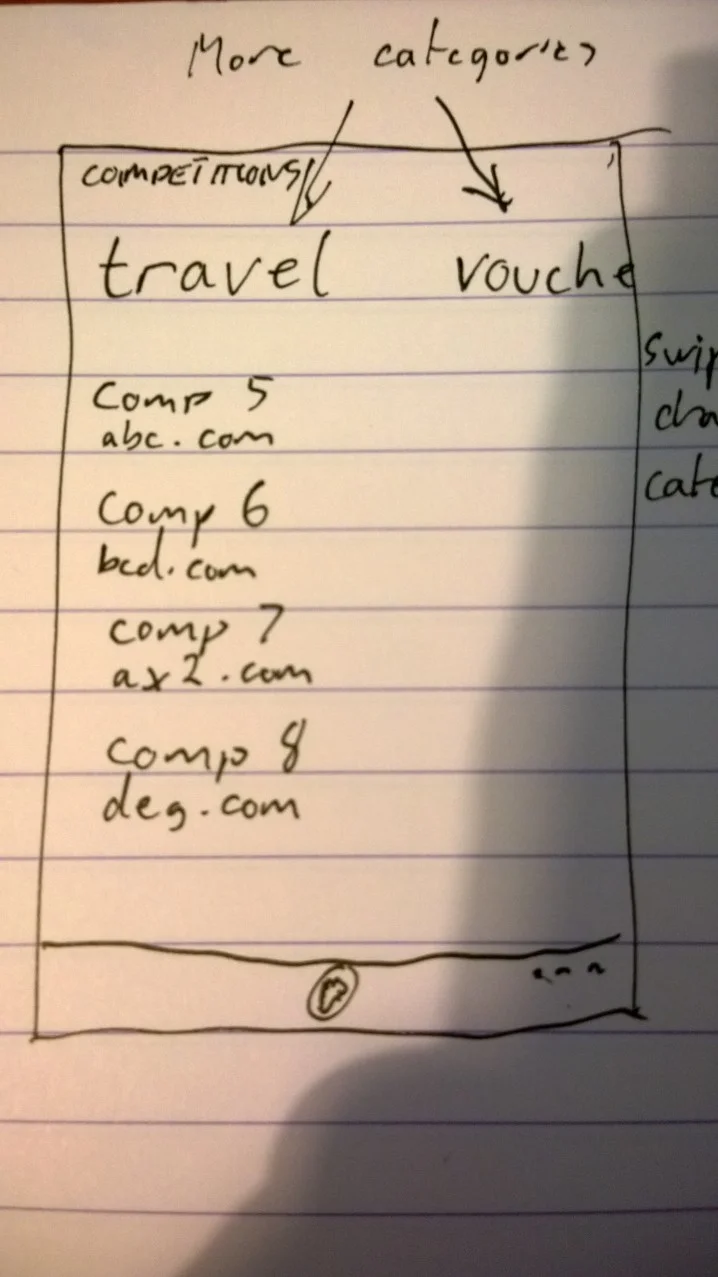 More categories
COMPETITIONS
travel vouche
Swip
cha
cate
Comp 5
abc.com
Comp 6
bcd.com
comp 7
ax2.com
Comp 8
deg.com